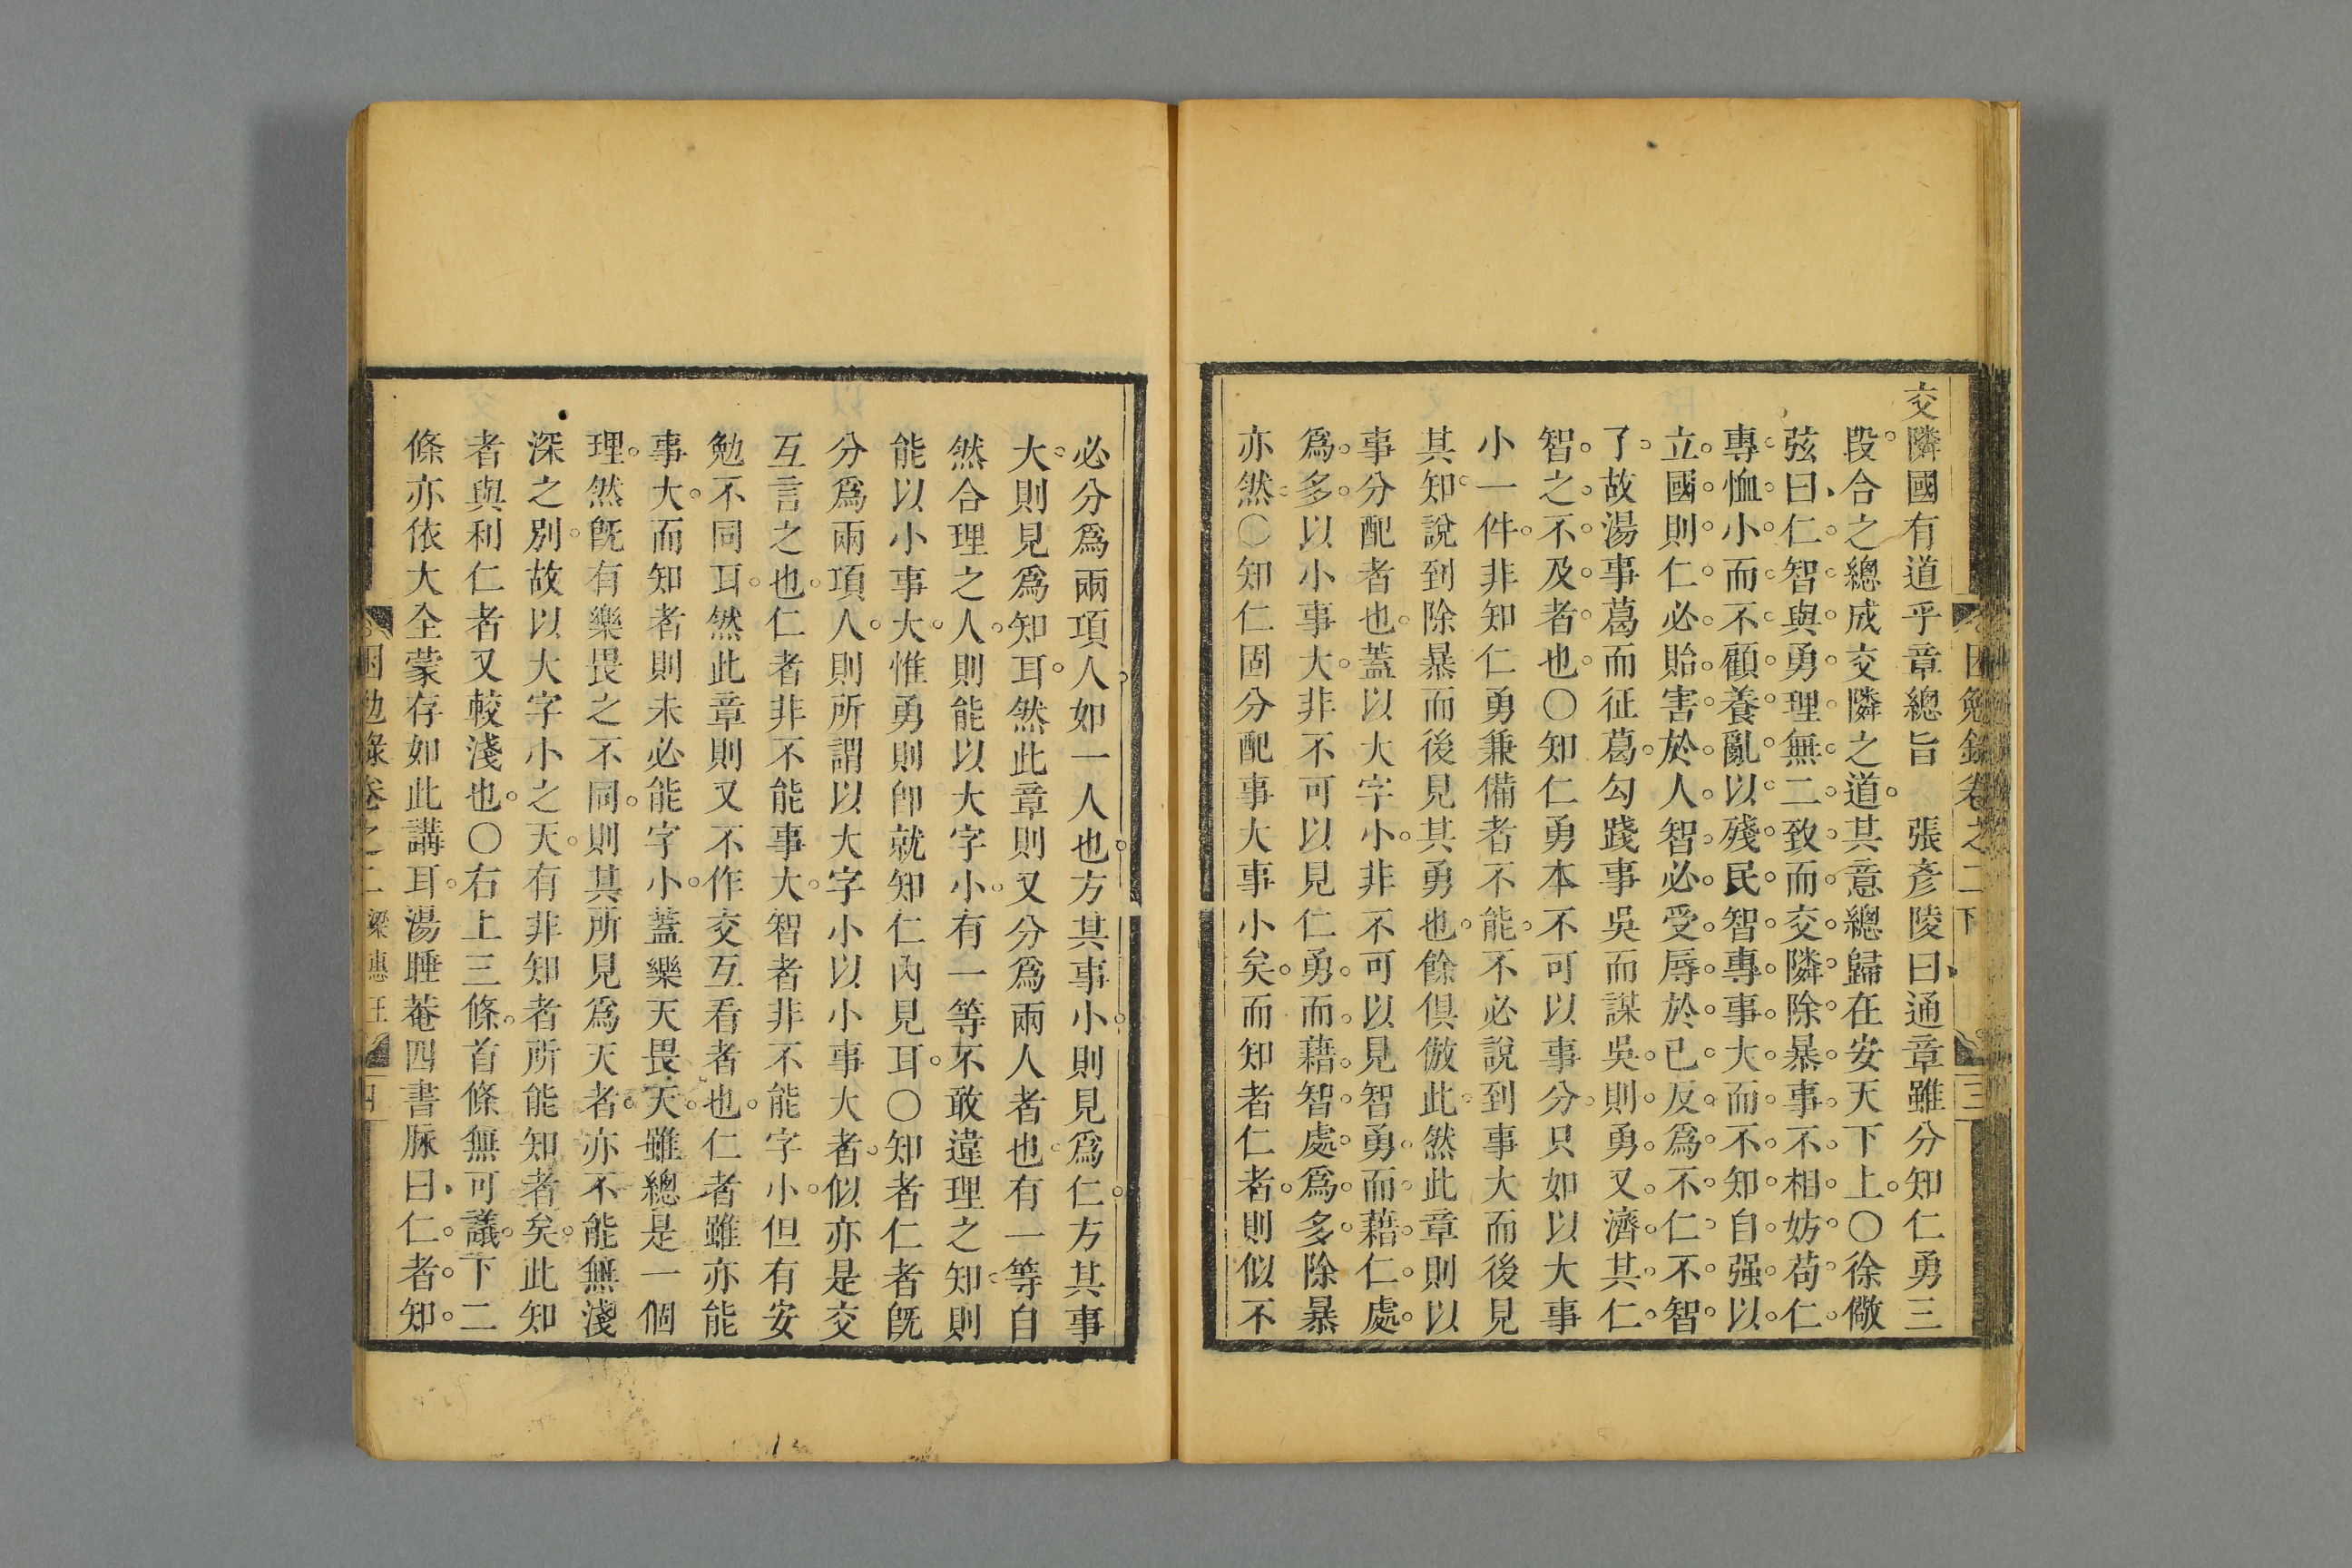 交隣國有道乎章總旨　張彥陵曰通章雖分知仁勇三
段合之總成交隣之道其意總歸在安天下上〇徐儆
弦曰仁智與勇理無二致而交隣除暴事不相妨苟仁
專恤小而不顧養亂以殘民智專事大而不知自强以
立國則仁必貽害於人智必受辱於已反爲不仁不智
了故湯事葛而征葛勾踐事吳而謀吳則勇又濟其仁
智之不及者也〇知仁勇本不可以事分只如以大事
小一件非知仁勇兼備者不能不必說到事大而後見
其知說到除暴而後見其勇也餘俱倣此然此章則以
事分配者也蓋以大字小非不可以見智勇而藉仁處
爲多以小事大非不可以見仁勇而藉智處爲多除暴
亦然〇知仁固分配事大事小矣而知者仁者則似不
必分爲兩項人如一人也方其事小則見爲仁方其事
大則見爲知耳然此章則又分爲兩人者也有一等自
然合理之人則能以大字小有一等不敢違理之知則
能以小事大惟勇則卽就知仁內見耳〇知者仁者旣
分爲兩項人則所謂以大字小以小事大者似亦是交
互言之也仁者非不能事大智者非不能字小但有安
勉不同耳然此章則又不作交互看者也仁者雖亦能
事大而知者則未必能字小蓋樂天畏天雖總是一個
理然旣有樂畏之不同則其所見爲天者亦不能無淺
深之別故以大字小之天有非知者所能知者矣此知
者與利仁者又較淺也〇右上三條首條無可議下二
條亦依大全蒙存如此講耳湯睡菴四書脉曰仁者知
困勉錄卷之二 梁惠王 四